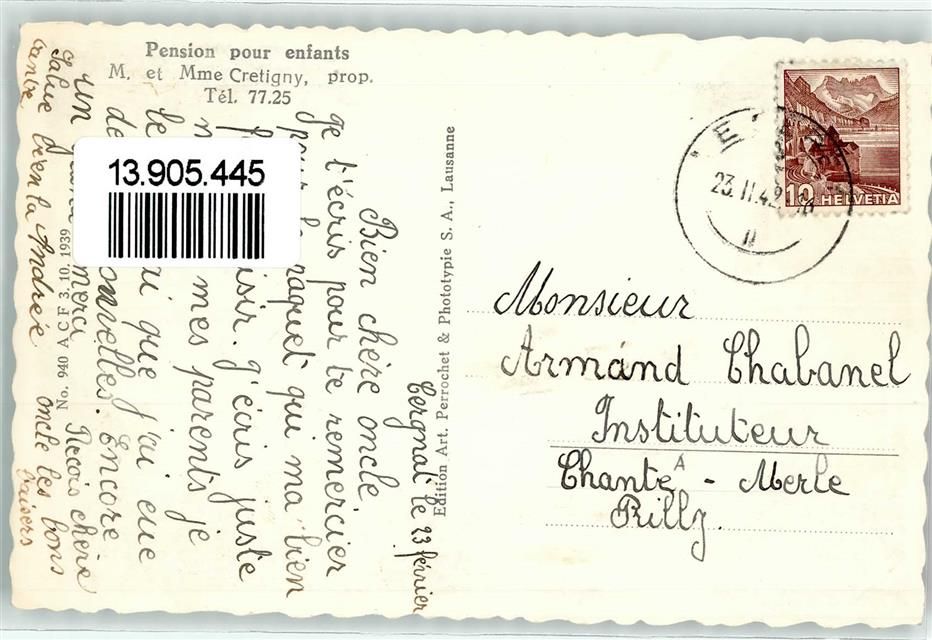 Pension pour enfants
M. et Mme Cretigny, prop.
Tél. 77.25
13.905.445
No. 940 A C F 3. 10. 1939
Edition Art. Perrochet & Phototypie S. A., Lausanne
10 HELVETIA
23. II. 42
Cergnat le 23 février
Bien chère oncle.
Je t'écris pour te remercier
pour le paquet qui ma bien
isir. J'écris juste
mes parents je
ai que j'ai eue
de nouvelles. Encore
Un merci. Recois chère
oncle les bons
baisers
Salue bien la Andrée
tante
Monsieur
Armand Chabanel
Instituteur
Chante - Merle
A
Rilly.